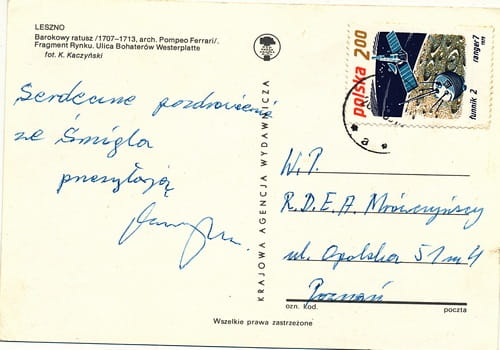 LESZNO
Barokowy ratusz /1707–1713, arch. Pompeo Ferrari/.
Fragment Rynku. Ulica Bohaterów Westerplatte
fot. K. Kaczyński
Serdeczne pozdrowienia
ze Śmigla
przesyłają
KRAJOWA AGENCJA WYDAWNICZA
polska 2,00
łunnik 2
ranger 7
a
W.P.
R.D.E.A. Mrówczyńscy
ul. Opolska 51 m 4
Poznań
ozn. Kod.
poczta
Wszelkie prawa zastrzeżone